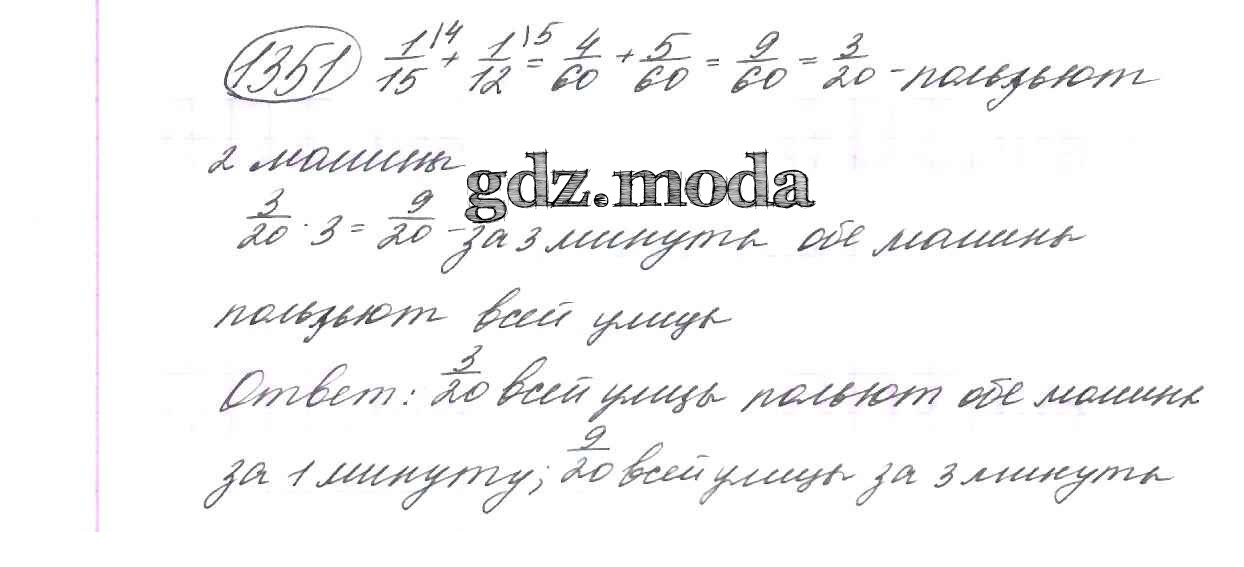 1351 1/15 \4 + 1/12 \5 = 4/60 + 5/60 = 9/60 = 3/20 - пользьют
2 машины
gdz.moda
3/20 · 3 = 9/20 - за 3 минуты обе машины
пользьют всей улицы
Ответ: 3/20 всей улицы польют обе машины
за 1 минуту; 9/20 всей улицы за 3 минуты